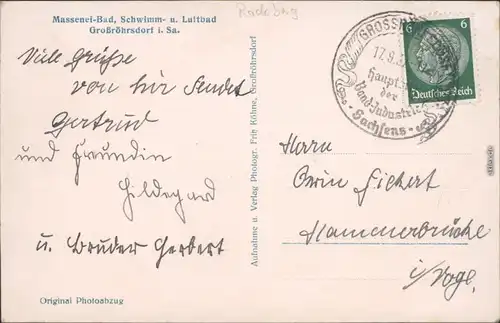 Massenei-Bad, Schwimm- u. Luftbad
Großröhrsdorf i. Sa.
Radeberg
Viele Grüße
von hier sendet
Gertrud
und Freundin
Hildegard
u. Bruder Herbert
Original Photoabzug
Aufnahme u. Verlag Photogr. Fritz Röhme, Großröhrsdorf
17.9.3
Haupt
der
Band-Industrie
Sachsens
6 6
Deutsches Reich
Herrn
Erwin Fickert
Hammerbrücke
i/Vogtl.